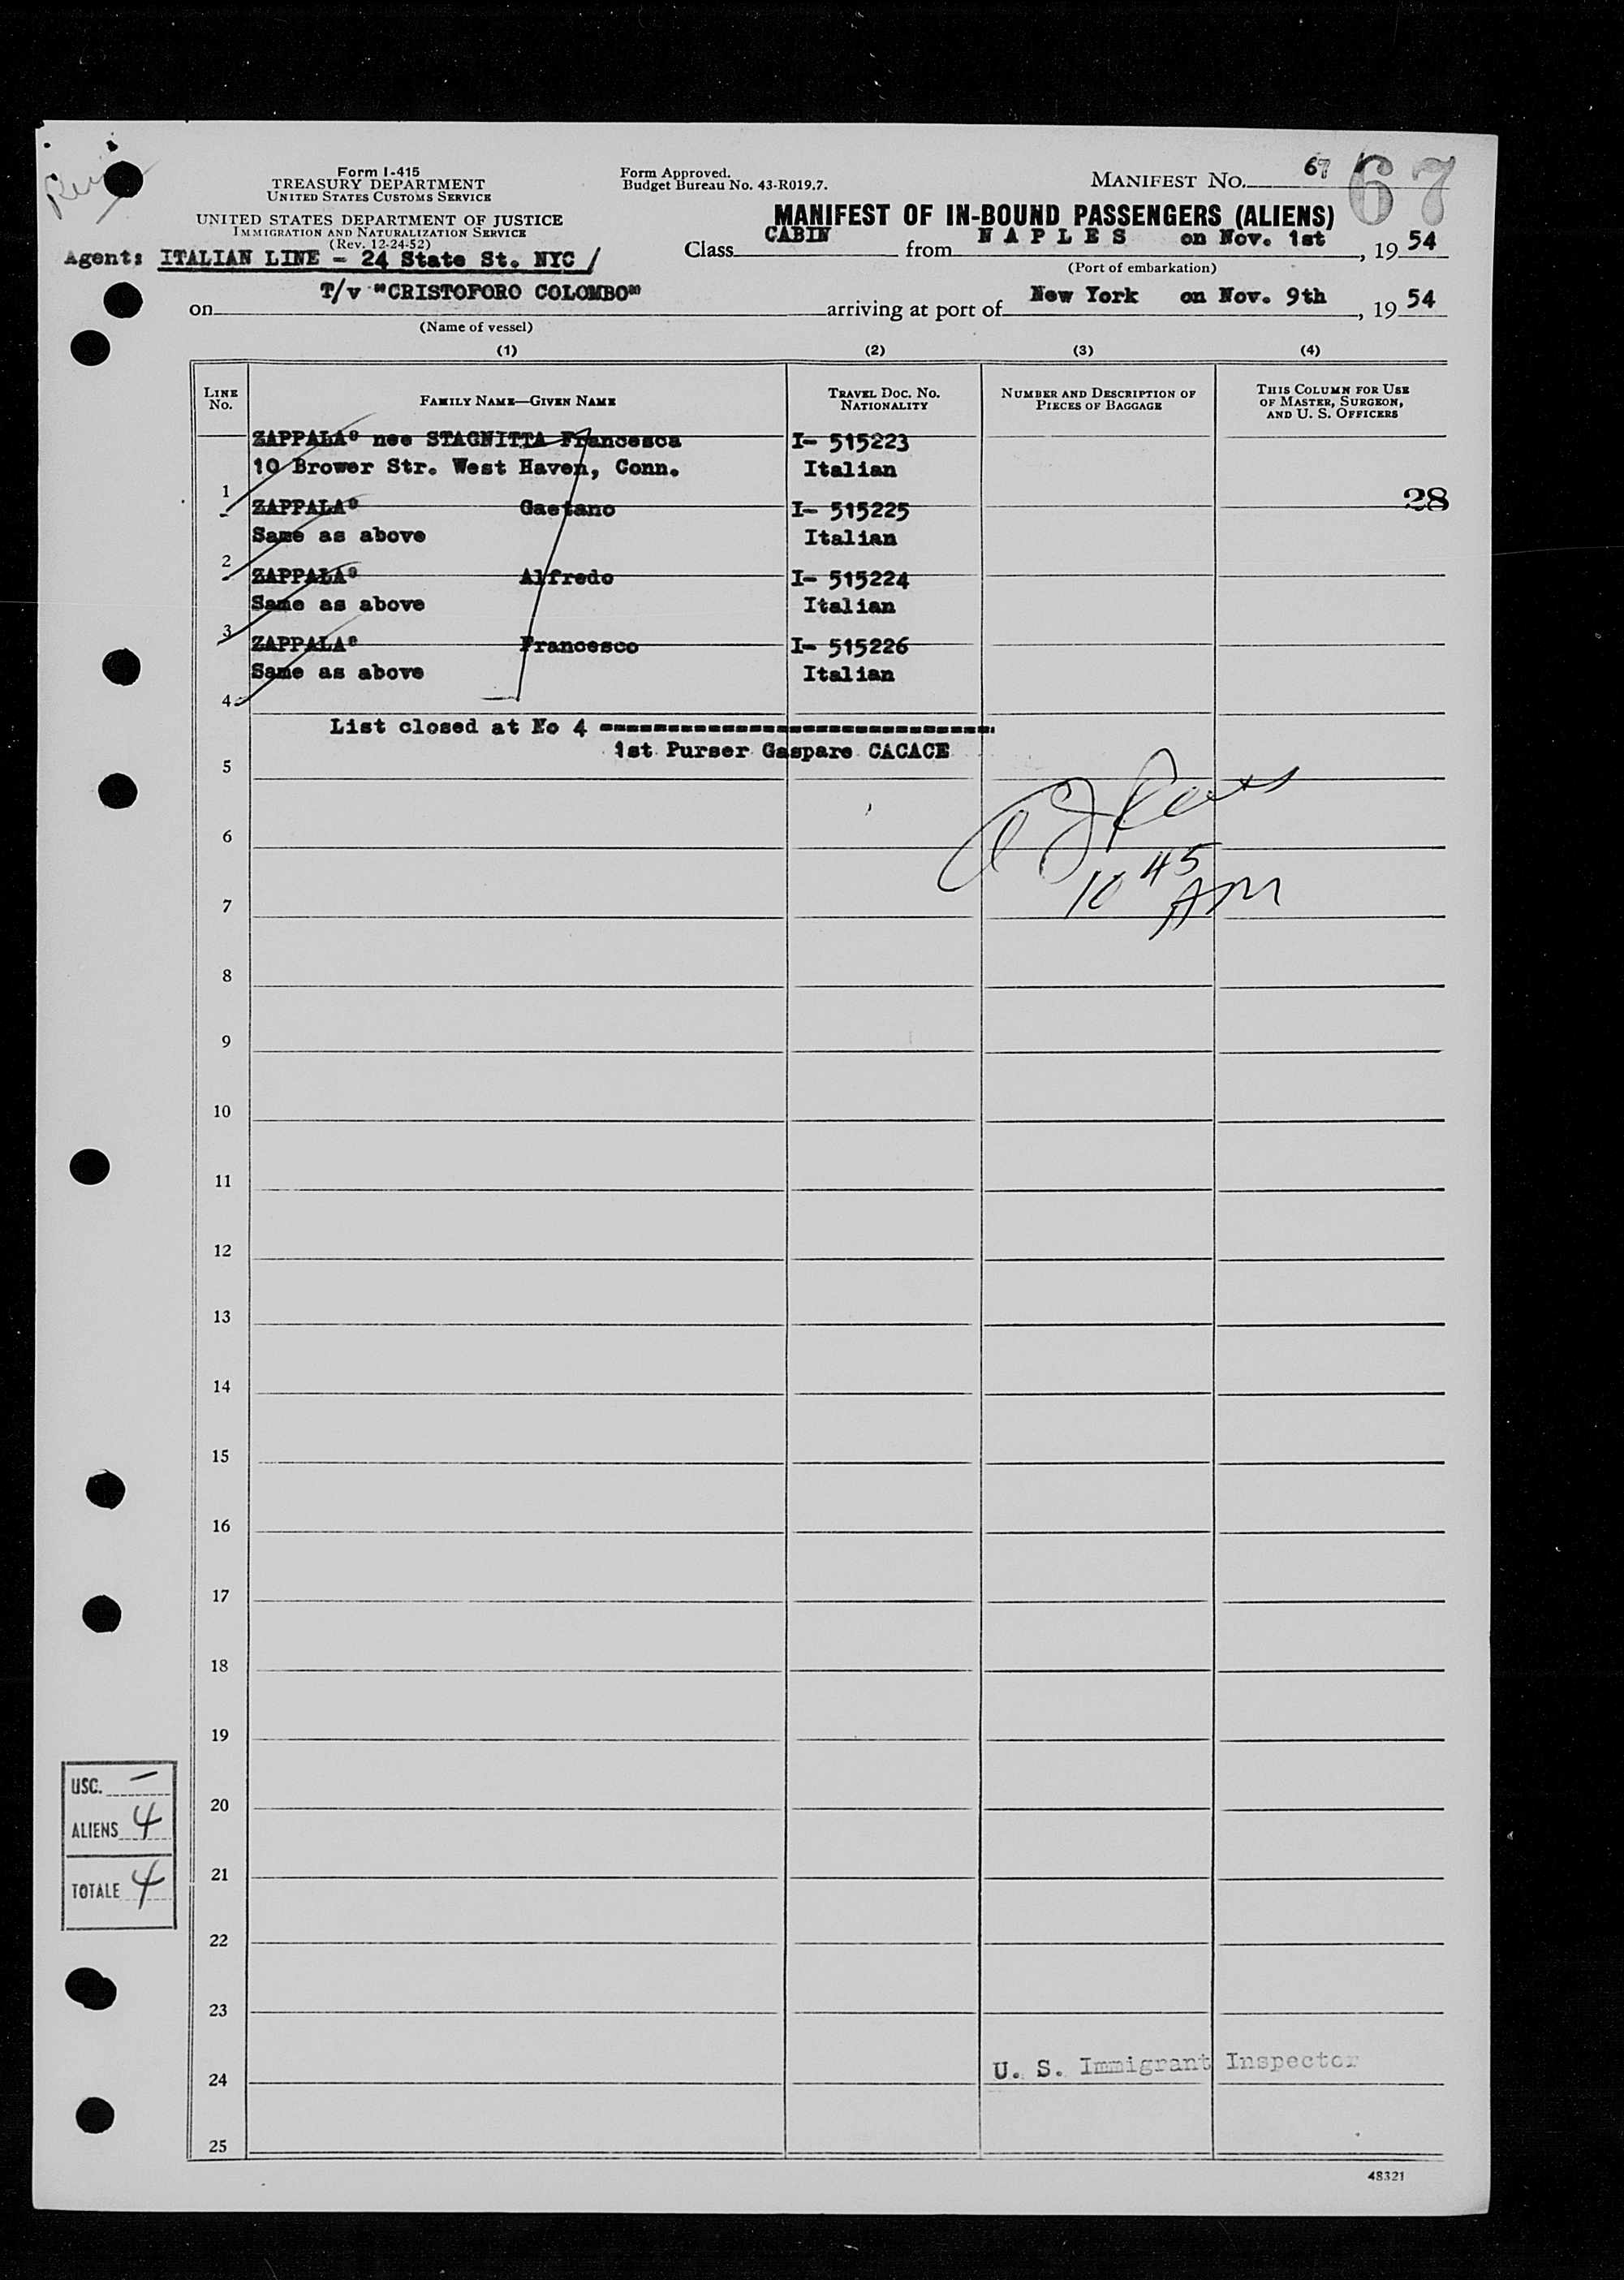 Form I-415
TREASURY DEPARTMENT
UNITED STATES CUSTOMS SERVICE
UNITED STATES DEPARTMENT OF JUSTICE
IMMIGRATION AND NATURALIZATION SERVICE
(Rev. 12-24-52)
Form Approved.
Budget Bureau No. 43-R019.7.
MANIFEST NO. 67 67
MANIFEST OF IN-BOUND PASSENGERS (ALIENS)
Agent: ITALIAN LINE - 24 State St. NYC /
Class CABIN from N A P L E S on Nov. 1st, 19 54
(Port of embarkation)
on T/v "CRISTOFORO COLOMBO" arriving at port of New York on Nov. 9th, 19 54
(Name of vessel)
(1) (2) (3) (4)
LINE No. FAMILY NAME—GIVEN NAME TRAVEL DOC. NO. NATIONALITY NUMBER AND DESCRIPTION OF PIECES OF BAGGAGE THIS COLUMN FOR USE OF MASTER, SURGEON, AND U. S. OFFICERS
ZAPPALA' nee STAGNITTA Francesca I- 515223
10 Brower Str. West Haven, Conn. Italian
1
28
ZAPPALA' Gaetano I- 515225
Same as above Italian
2
ZAPPALA' Alfredo I- 515224
Same as above Italian
3
ZAPPALA' Francesco I- 515226
Same as above Italian
4
List closed at No 4 -----------------------------
1st Purser Gaspare CACACE
5
6
10 45 AM
7
8
9
10
11
12
13
14
15
16
17
18
19
USC. —
20
ALIENS 4
21
TOTALE 4
22
23
U. S. Immigrant Inspector
24
25
48321